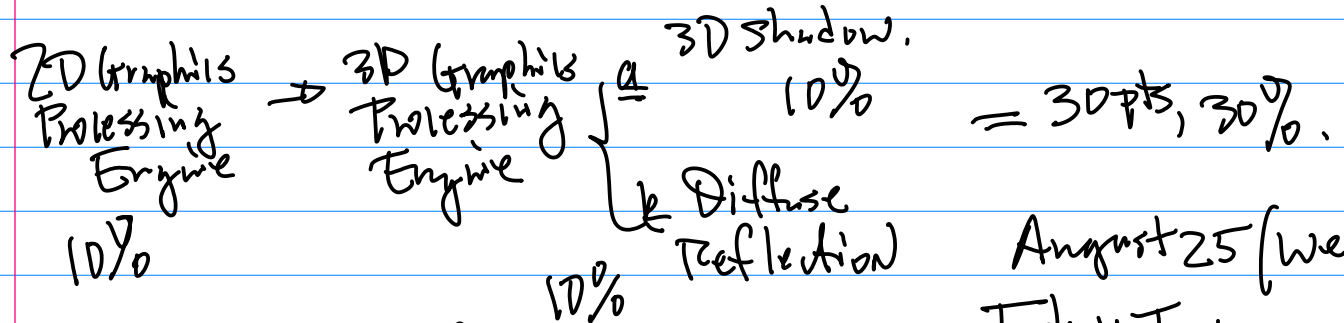 2D Graphics Processing Engine
10%
→ 3D Graphics Processing Engine
a 3D Shadow.
10%
b Diffuse Reflection
10%
= 30pts, 30%.
August 25 (We